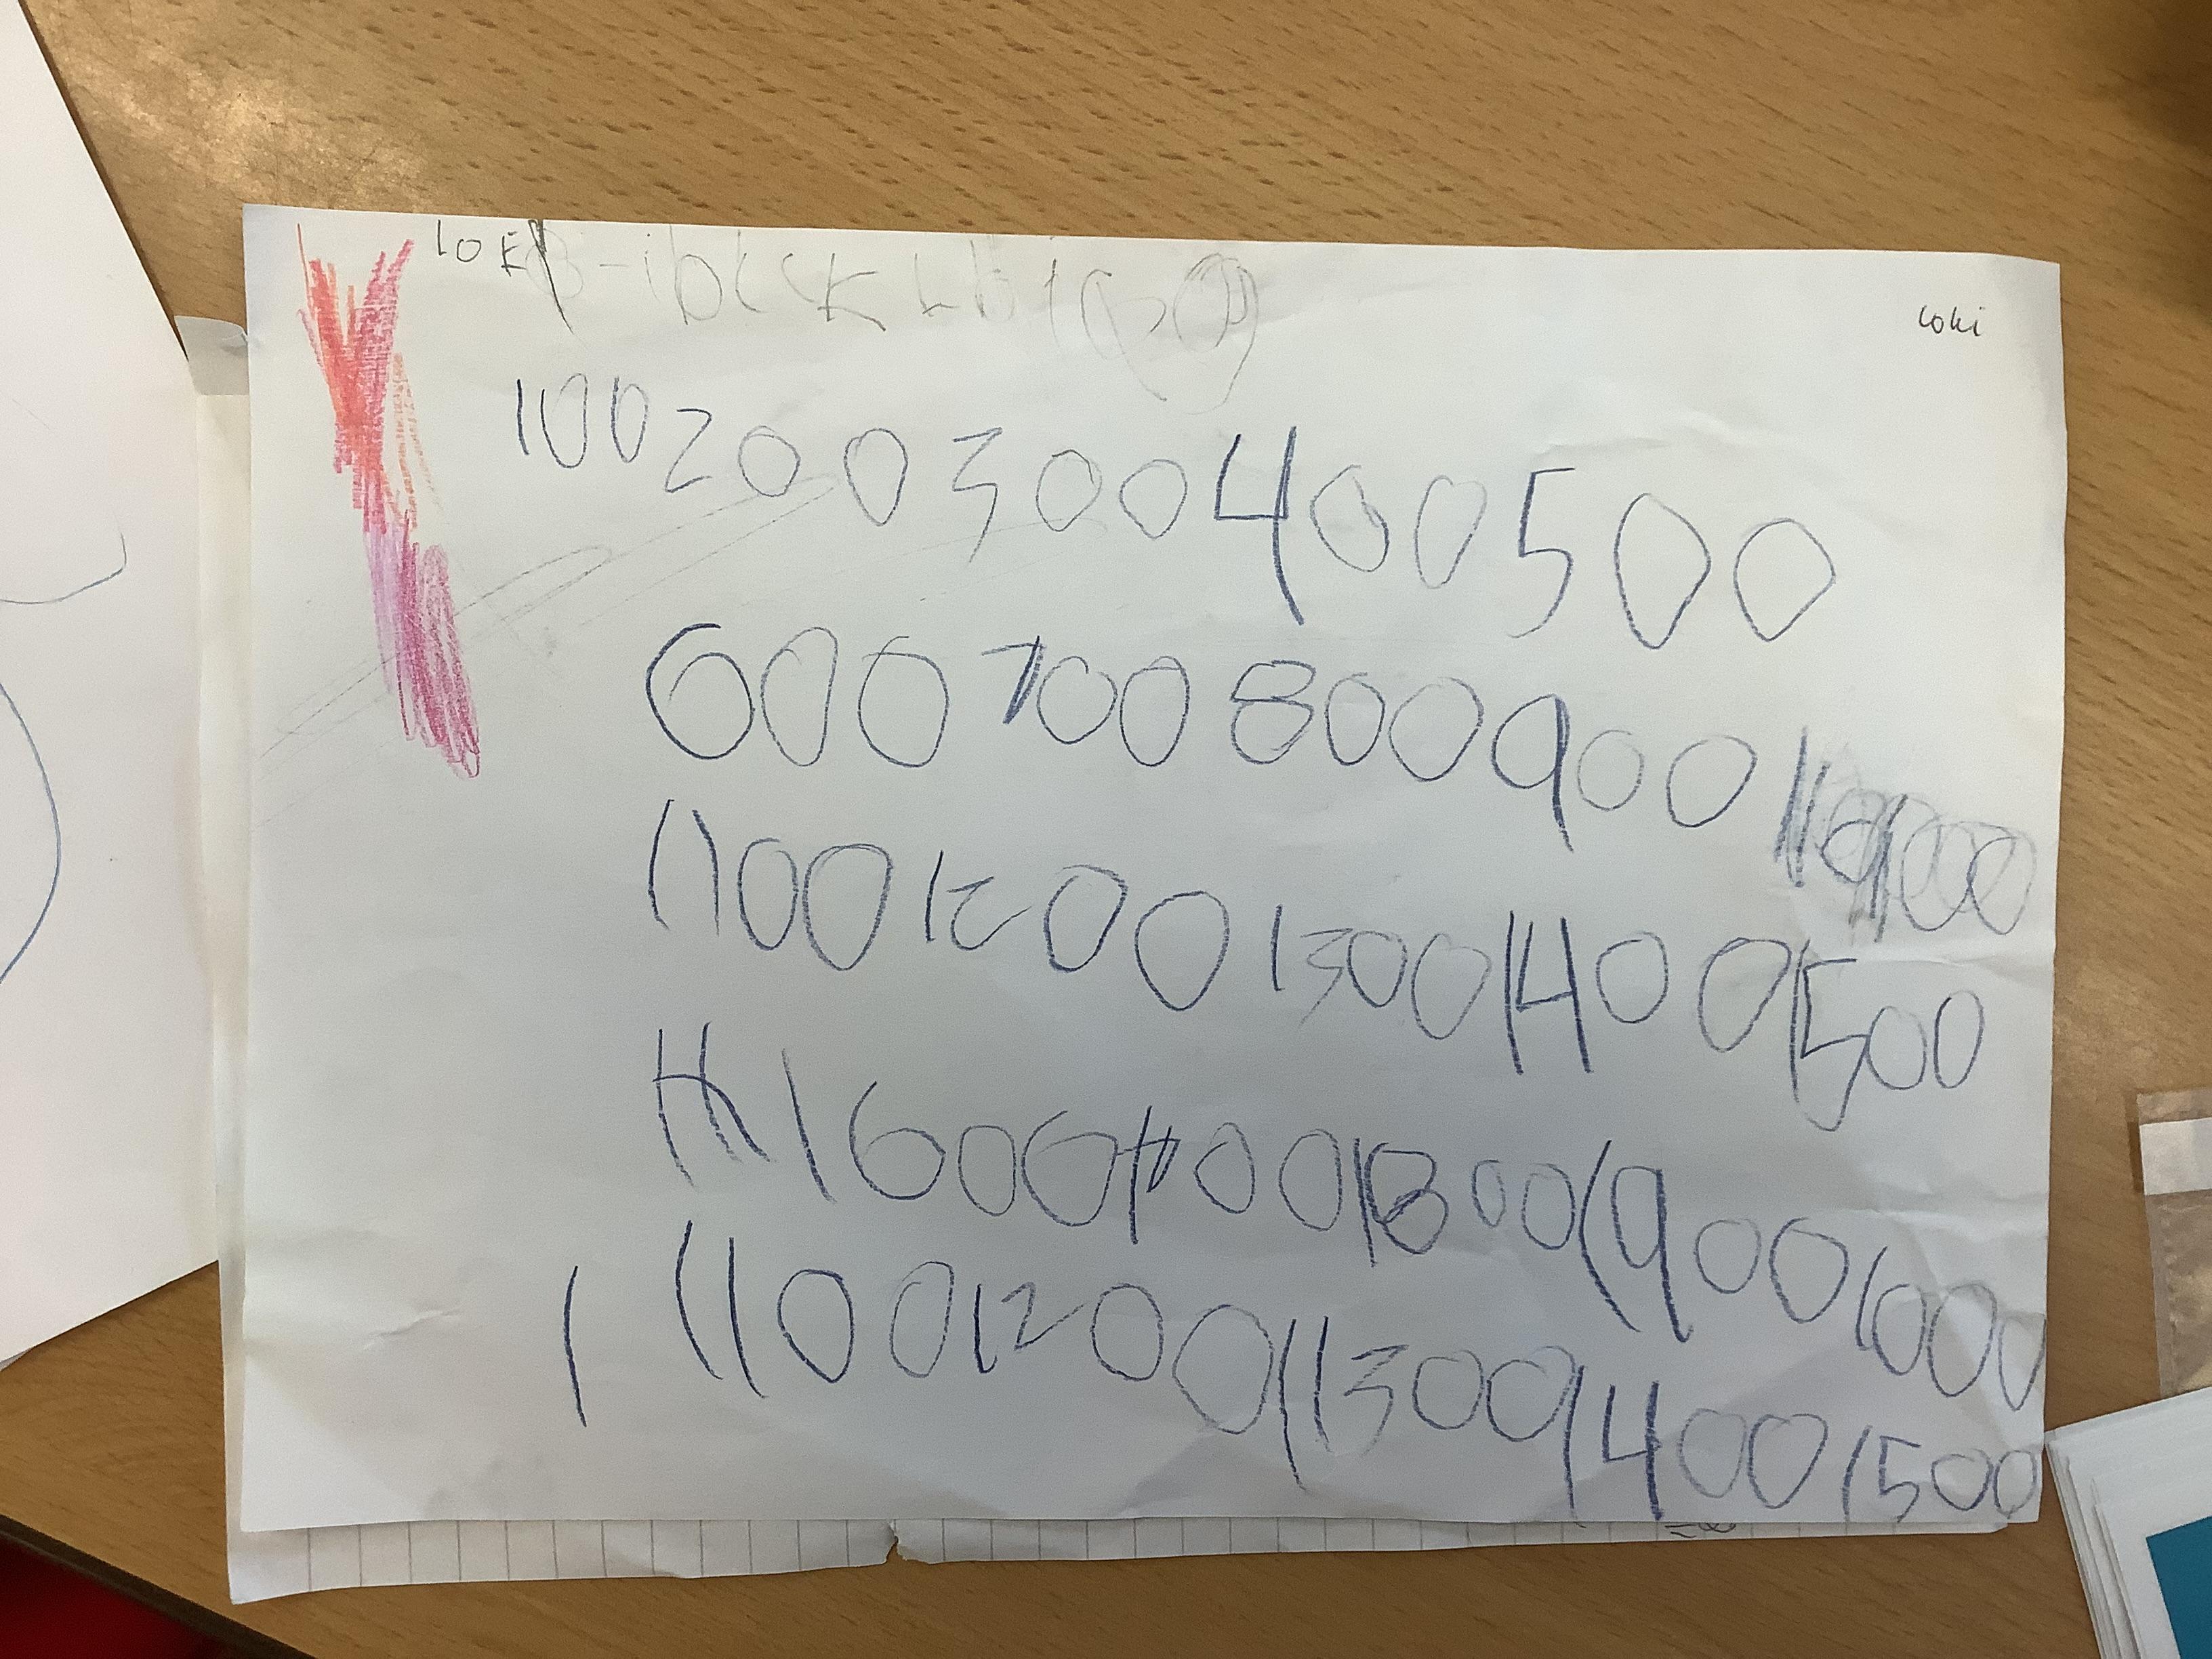 loki
loki
100 200 300 400 500
600 700 800 900
1100 1200 1300 1400 1500
1600 1700 1800 1900 1000
1 1100 1200 11300 1400 1500